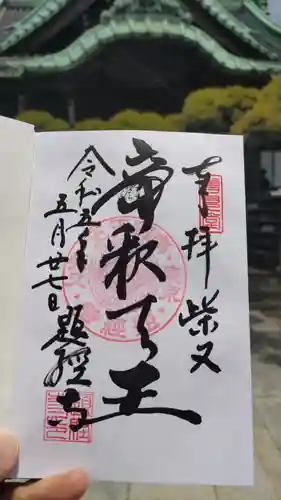 奉拝 柴又
帝釈天王
令和五年
五月廿七日 題経寺